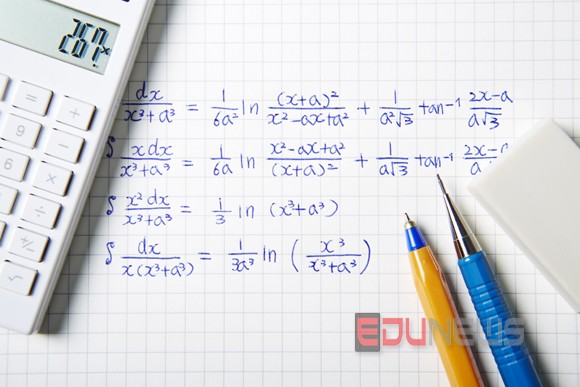 dx/(x³+a³) = 1/(6a²) ln (x+a)²/(x²-ax+a²) + 1/(a²√3) tan⁻¹ (2x-a)/(a√3)
∫ xdx/(x³+a³) = 1/(6a) ln (x²-ax+a²)/(x+a)² + 1/(a√3) tan⁻¹ 2x-a/a
∫ x²dx/(x³+a³) = 1/3 ln (x³+a³)
∫ dx/(x(x³+a³)) = 1/(3a³) ln (x³/(x³+a³))
EDUNEWS